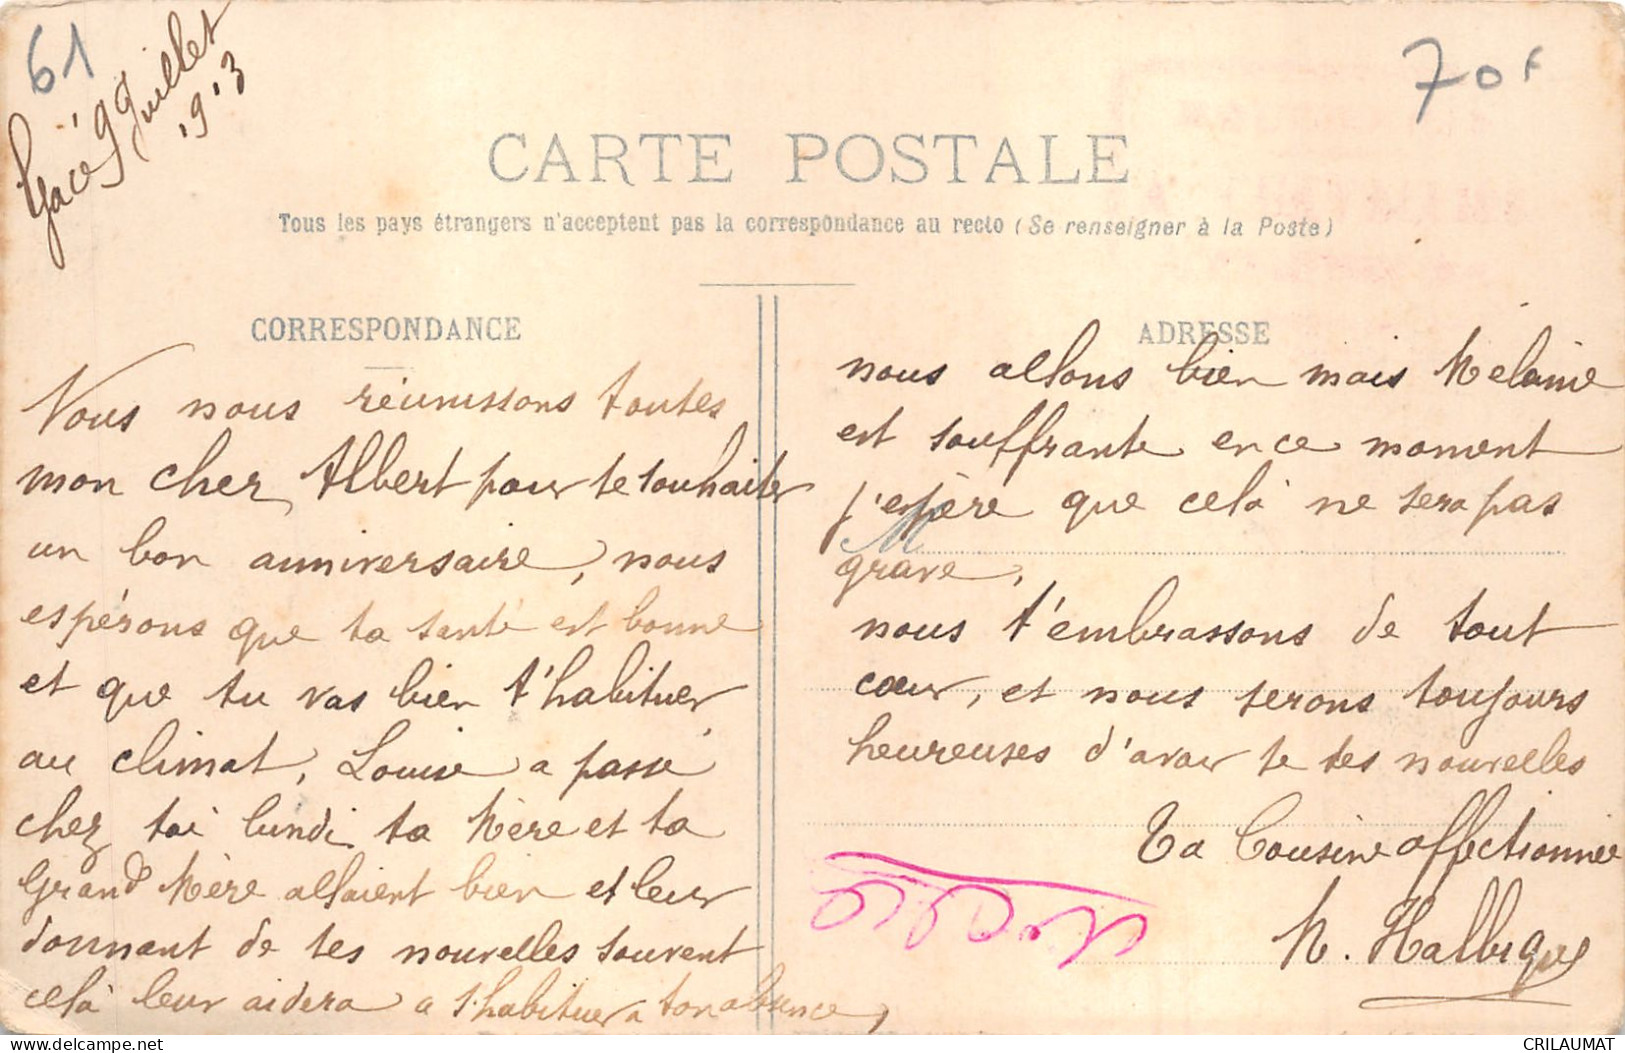 61
Gacé 9 Juillet
1913
70F
CARTE POSTALE
Tous les pays étrangers n'acceptent pas la correspondance au recto (Se renseigner à la Poste)
CORRESPONDANCE
Nous nous réunissons toutes
mon cher Albert pour te souhaiter
un bon anniversaire, nous
espérons que ta santé est bonne
et que tu vas bien t'habituer
au climat, Louise a passé
chez toi lundi ta Mère et ta
Grand Mère allaient bien et leur
donnant de tes nouvelles souvent
celà leur aidera a s'habituer a ton absence,
ADRESSE
nous allons bien mais Melanie
est souffrante en ce moment
j'espère que celà ne sera pas
M
grave,
nous t'embrassons de tout
cœur, et nous serons toujours
heureuses d'avoir de tes nouvelles
Ta Cousine affectionnée
M. Halbique
delcampe.net
CRILAUMAT